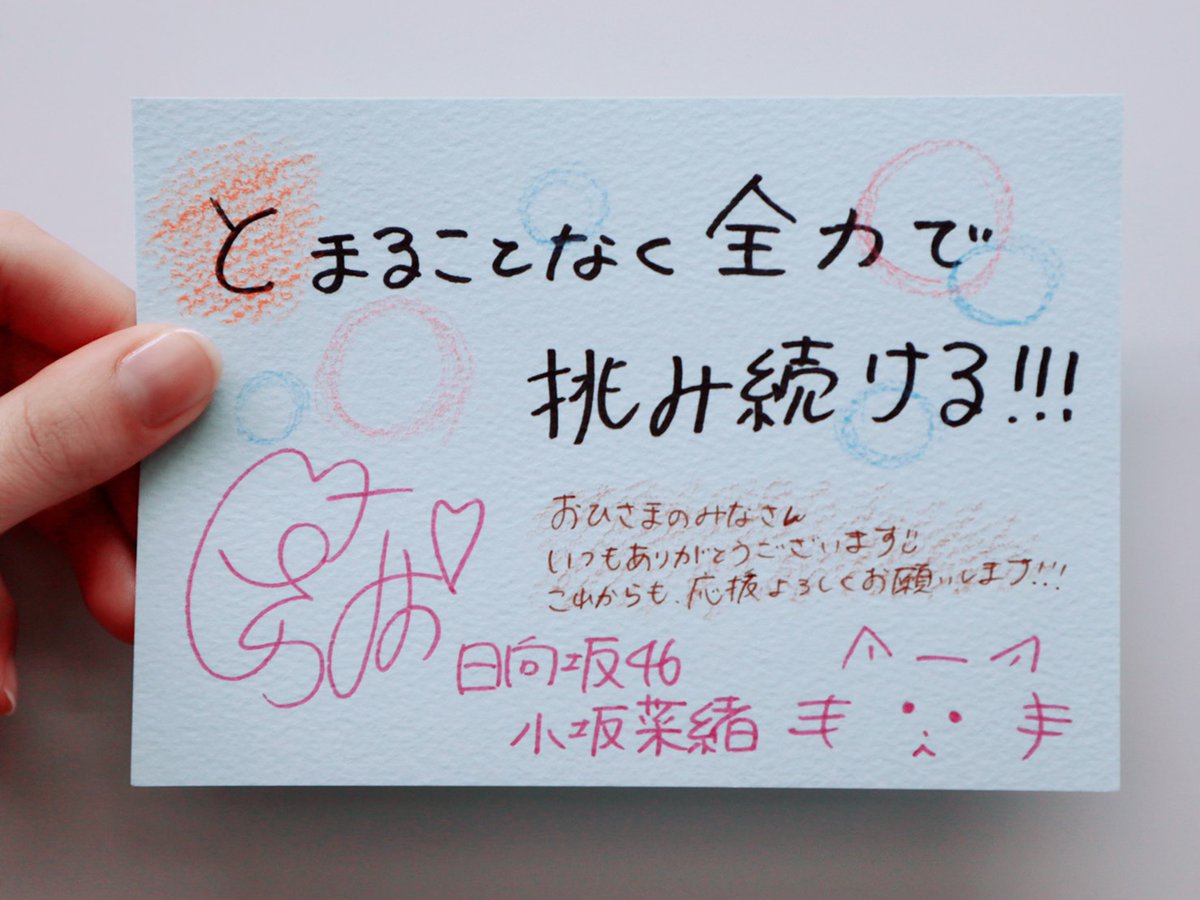 とまることなく全力で
挑み続ける!!!
おひさまのみなさん
いつもありがとうございます
これからも、応援よろしくお願いします!!!
日向坂46
小坂菜緒